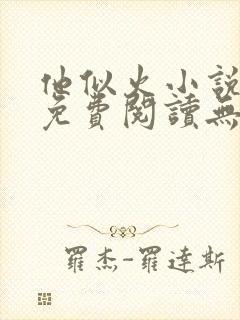 他似火小說
免費閱讀無
羅杰-羅達斯